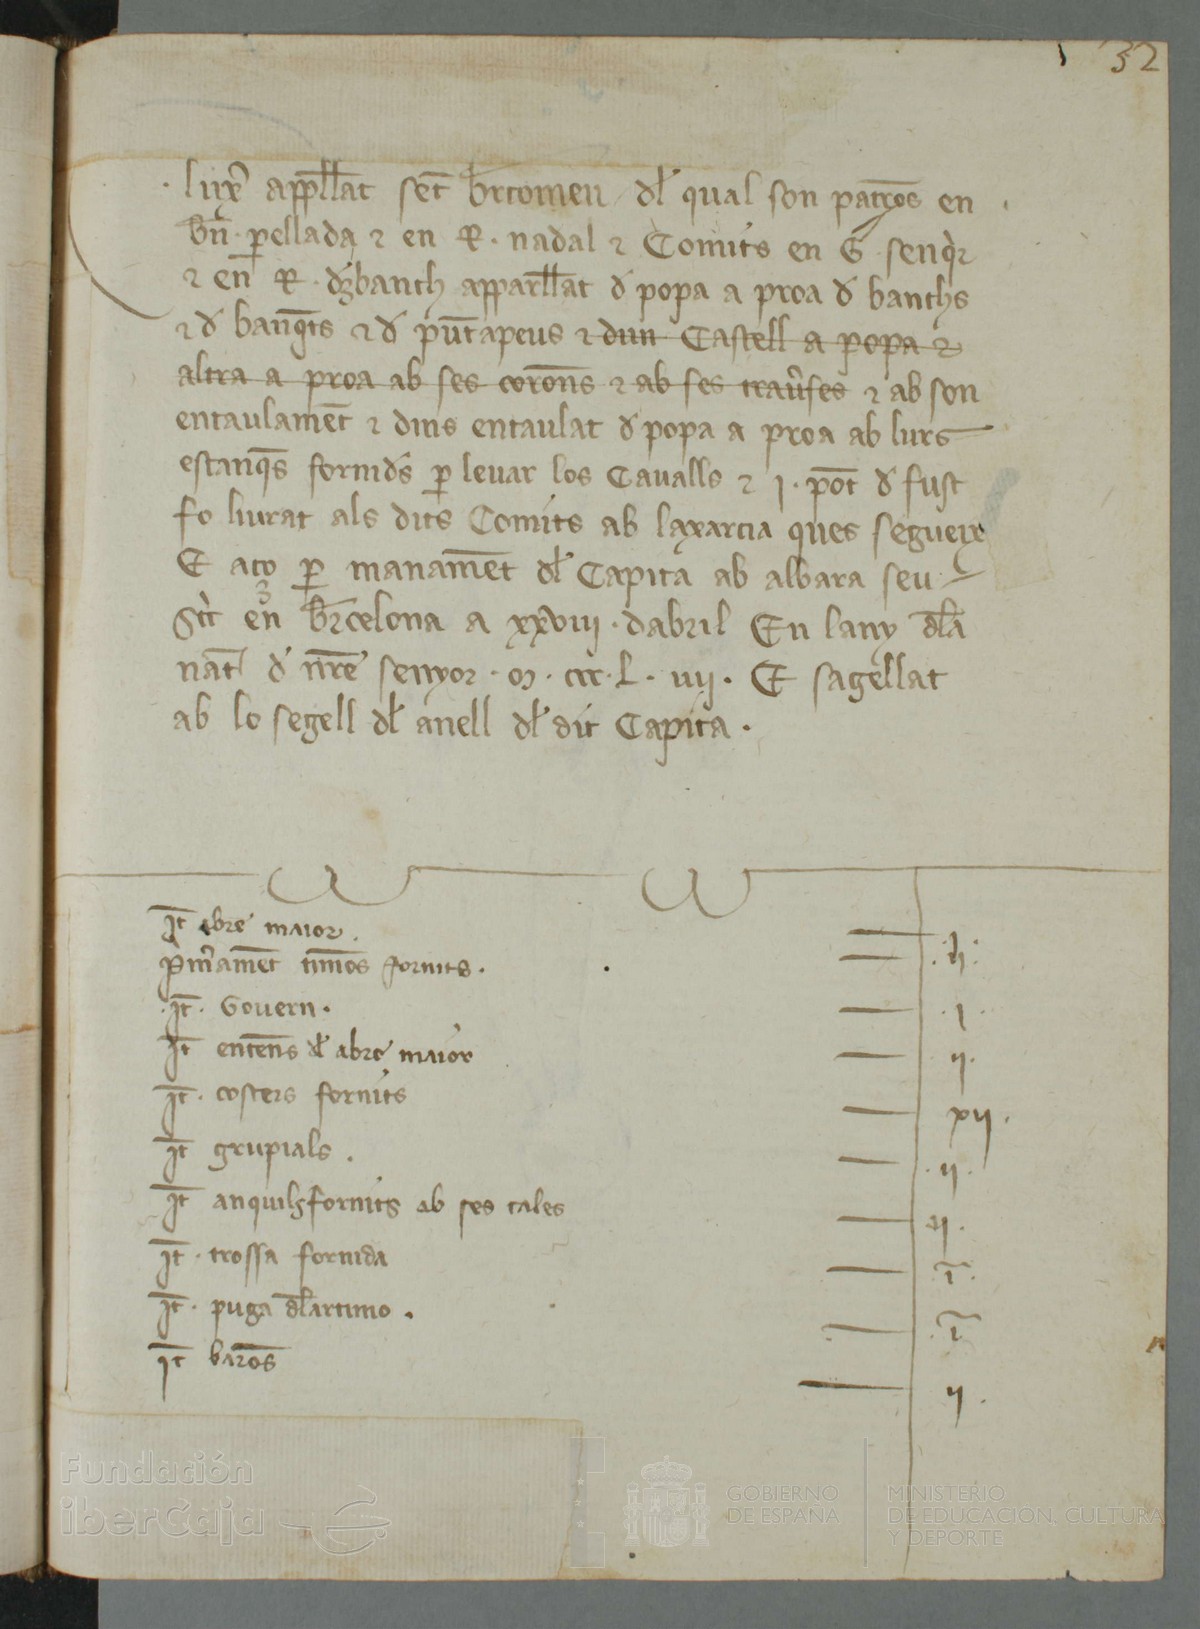 32
· luyer appllat sent brtomeu / dl qual son patrons en
bn · pellada & en R · nadal & Comits en G · senqr
& en R · banch apparllat d popa a proa d banchs
& d banqts & d puntapeus & dun Castell a popa &
altra a proa ab ses corons & ab ses travses & ab son
entaulament & dins entaulat d popa a proa ab lurs
estanqs fornids p levar los Cavalls & i · pont d fust
fo liurat als dits Comits ab laxarcia ques segueix
E aço p manament dl Capita ab albara seu
Scit en brcelona a xxviii · dabril En lany dla
nat d nre senyor · M · ccc · L · iiii · E sagellat
ab lo segell dl anell dl dit Capita ·
It abre maior · i ·
Primament timons fornits · ii ·
It · Govern · · i ·
It entens dl abre maior ii ·
It · costers fornits xii ·
It grupials · · ii ·
It anquils fornits ab ses tales ii ·
It · trossa fornida · i ·
It · puga dlartimo · · i ·
It barons ii ·
Fundación
iberCaja
GOBIERNO
DE ESPAÑA
MINISTERIO
DE EDUCACIÓN, CULTURA
Y DEPORTE